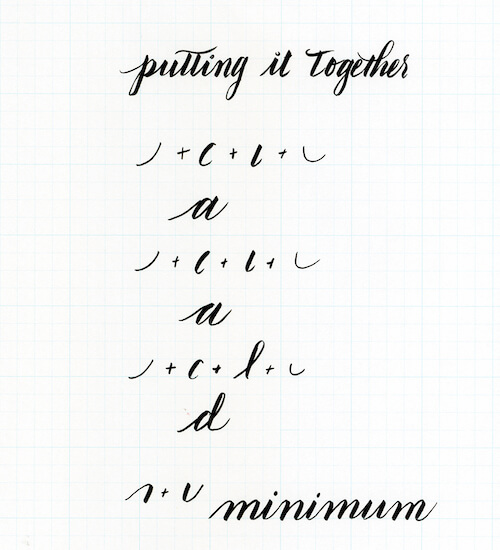 putting it together
a
a
d
minimum